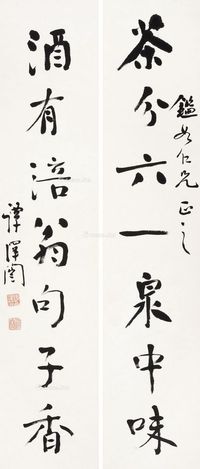 茶分六一泉中味
鑑如仁兄正之
酒有涪翁句子香
譚澤闓